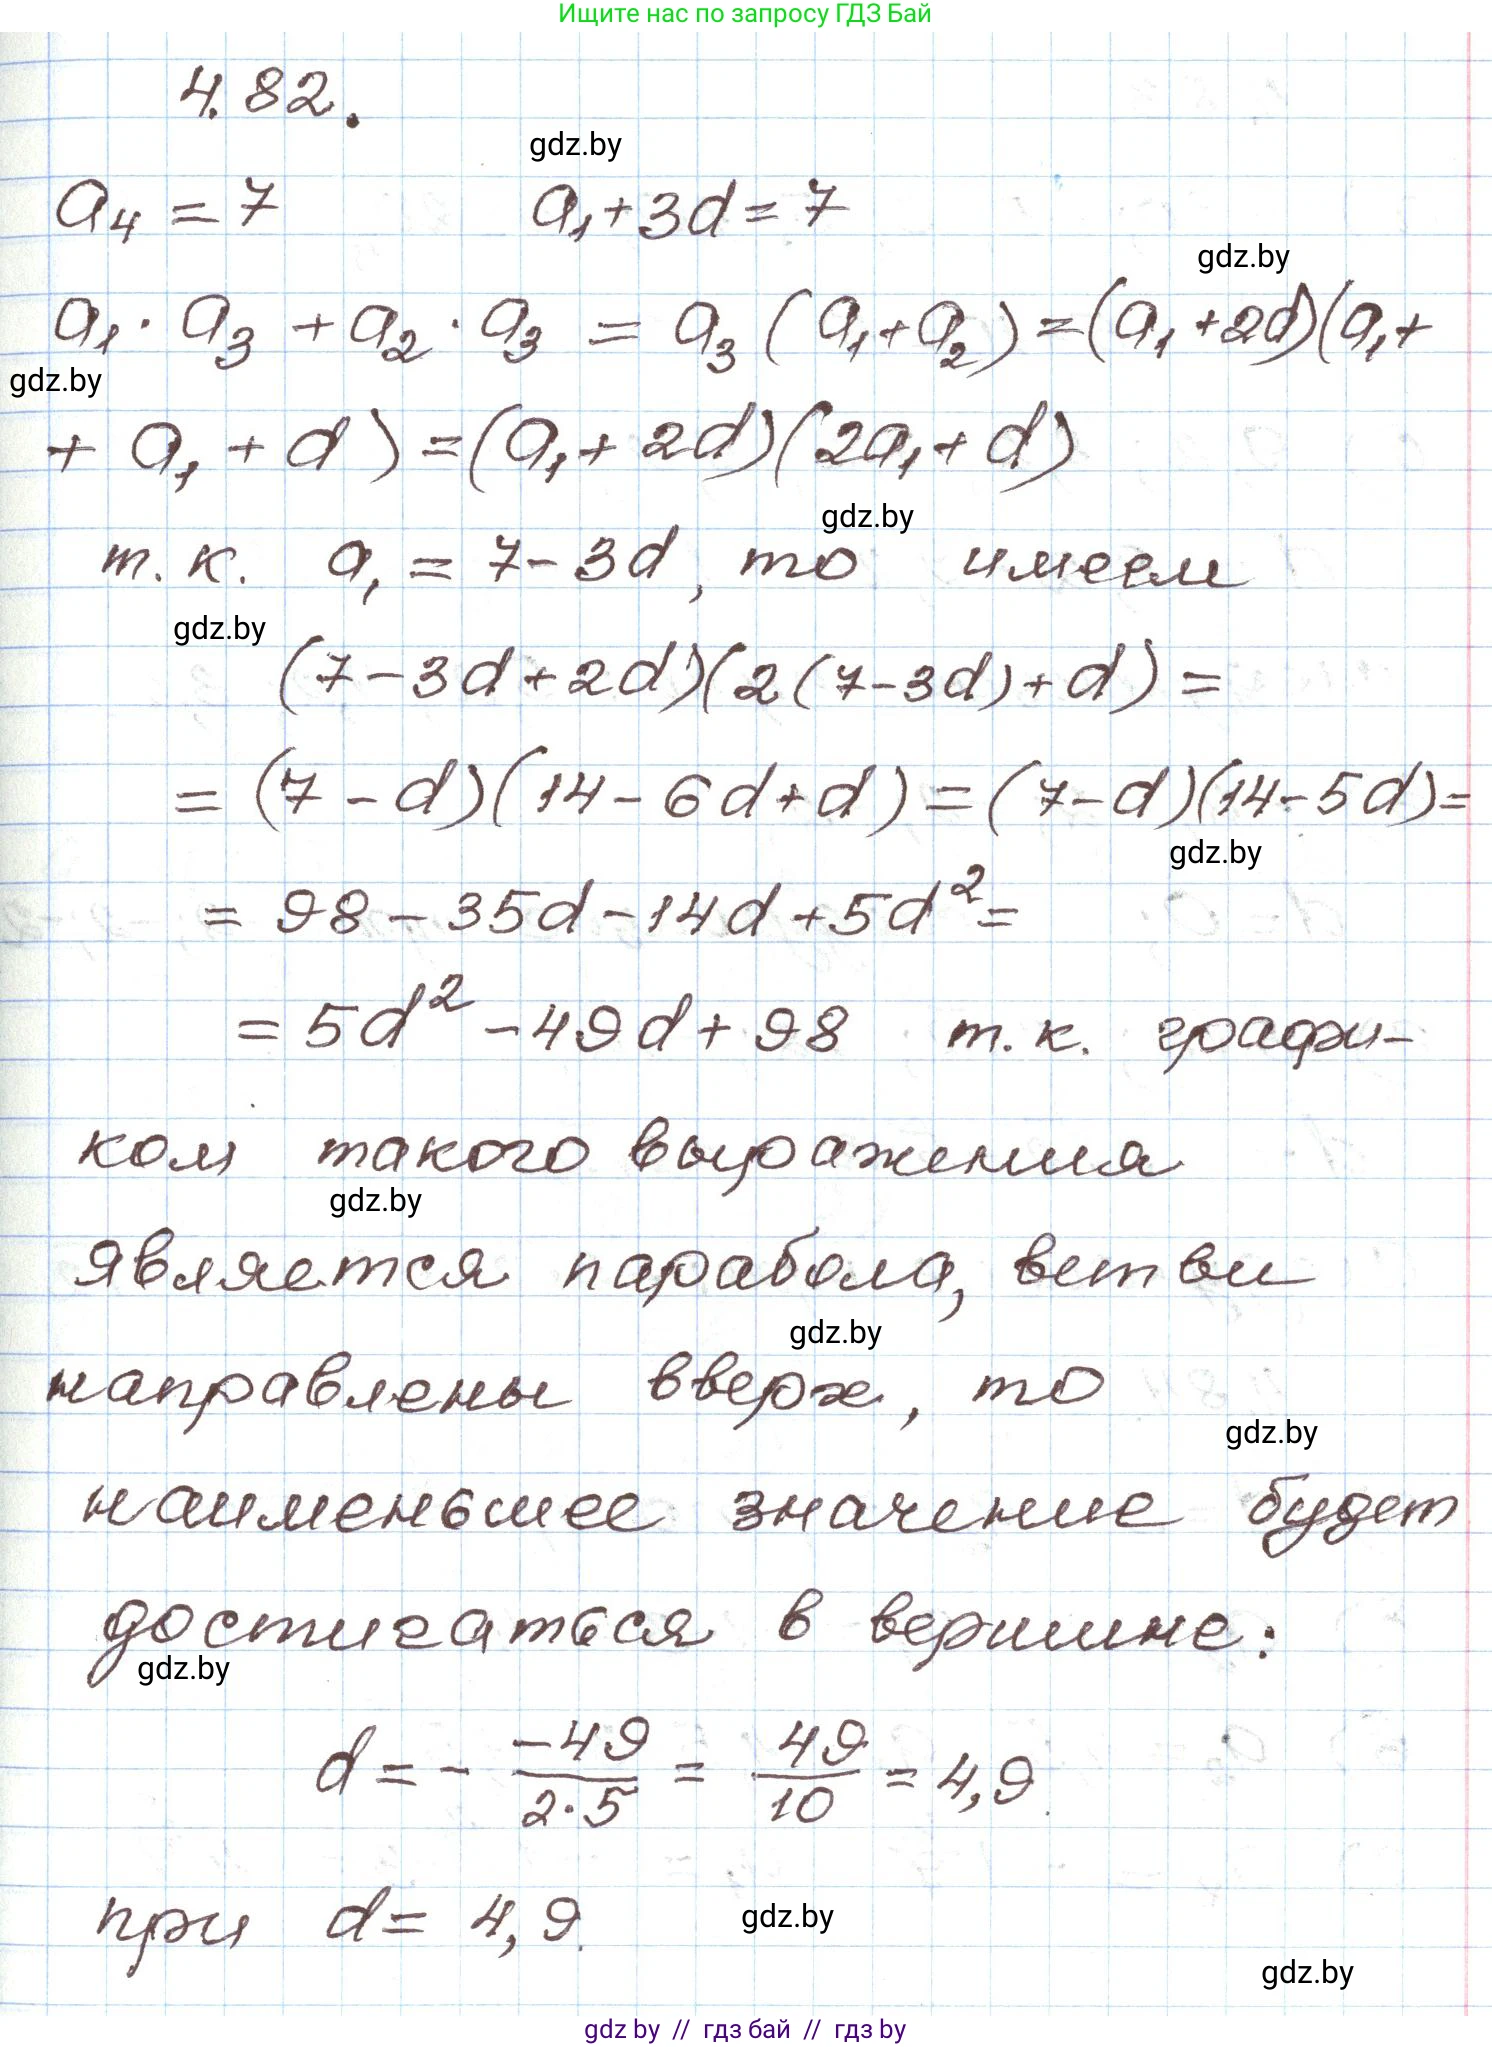 Ищите нас по запросу ГДЗ Бай
4.82.
gdz.by
a₄ = 7 a₁+3d=7
gdz.by
a₁·a₃+a₂·a₃ = a₃(a₁+a₂)=(a₁+2d)(a₁+
gdz.by
+ a₁ + d)=(a₁+2d)(2a₁+d)
gdz.by
т.к. a₁ = 7-3d, то имеем
gdz.by
(7-3d+2d)(2(7-3d)+d)=
=(7-d)(14-6d+d)=(7-d)(14-5d)=
gdz.by
= 98-35d-14d+5d²=
=5d²-49d+98 т.к. графи-
ком такого выражения
gdz.by
является парабола, ветви
gdz.by
направлены вверх, то
gdz.by
наименьшее значение будет
достигаться в вершине:
gdz.by
d=- -49/2·5 = 49/10 = 4,9.
при d= 4,9.
gdz.by
gdz.by
gdz by // гдз бай // гдз by